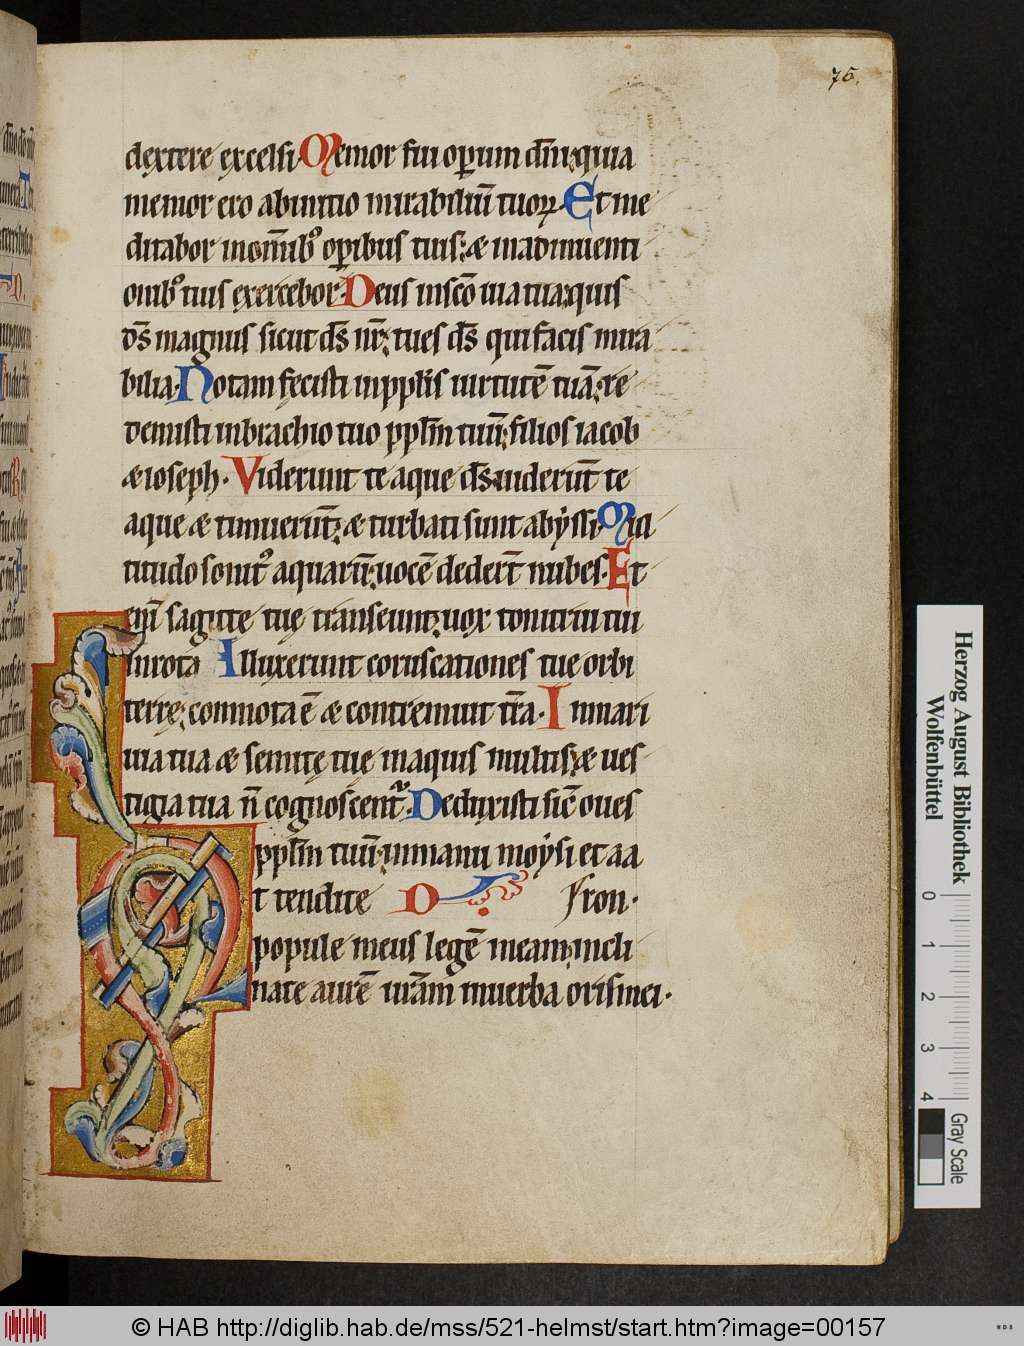 75.
dextere excelsi. Memor fui oꝑum dn̄i; quia
memor ero abinitio mirabiliū tuoꝝ. Et me
ditabor inom̄ib᷒ oꝑibus tuis; æ inadinuenti
onib᷒ tuis exercebor. Deus insc̄o uia tua; quis
ds̄ magnus sicut ds̄ nr̄; tu es ds̄ qui facis mira
bilia. Notam fecisti inppl̄is uirtutē tuā; re
demisti inbrachio tuo ppl̄m tuū; filios iacob
æ ioseph. Viderunt te aque ds̄; uiderūt te
aque æ timuerūt; æ turbati sunt abẏssi. Mul
titudo sonit᷒ aquarū; uocē dedert̄ nubes. Et
eni͂ sagitte tuę transeunt; uox tonitrui tui
inrota Illuxerunt coruscationes tue orbi
terrę; conmota ē æ contremuit tr̄a. Inmari
uia tua æ semitę tuę inaquis multis; æ ues
tigia tua n̄ cognoscent᷑. Deduxisti sic̄ oues
ppl̄m tuū; inmanu moẏsi et aa
t tendite D ſron.
popule meus legē meam; incli
nate aurē ur̄am inuerba oris mei.
Herzog August Bibliothek
Wolfenbüttel
0 1 2 3 4
Gray Scale
© HAB http://diglib.hab.de/mss/521-helmst/start.htm?image=00157